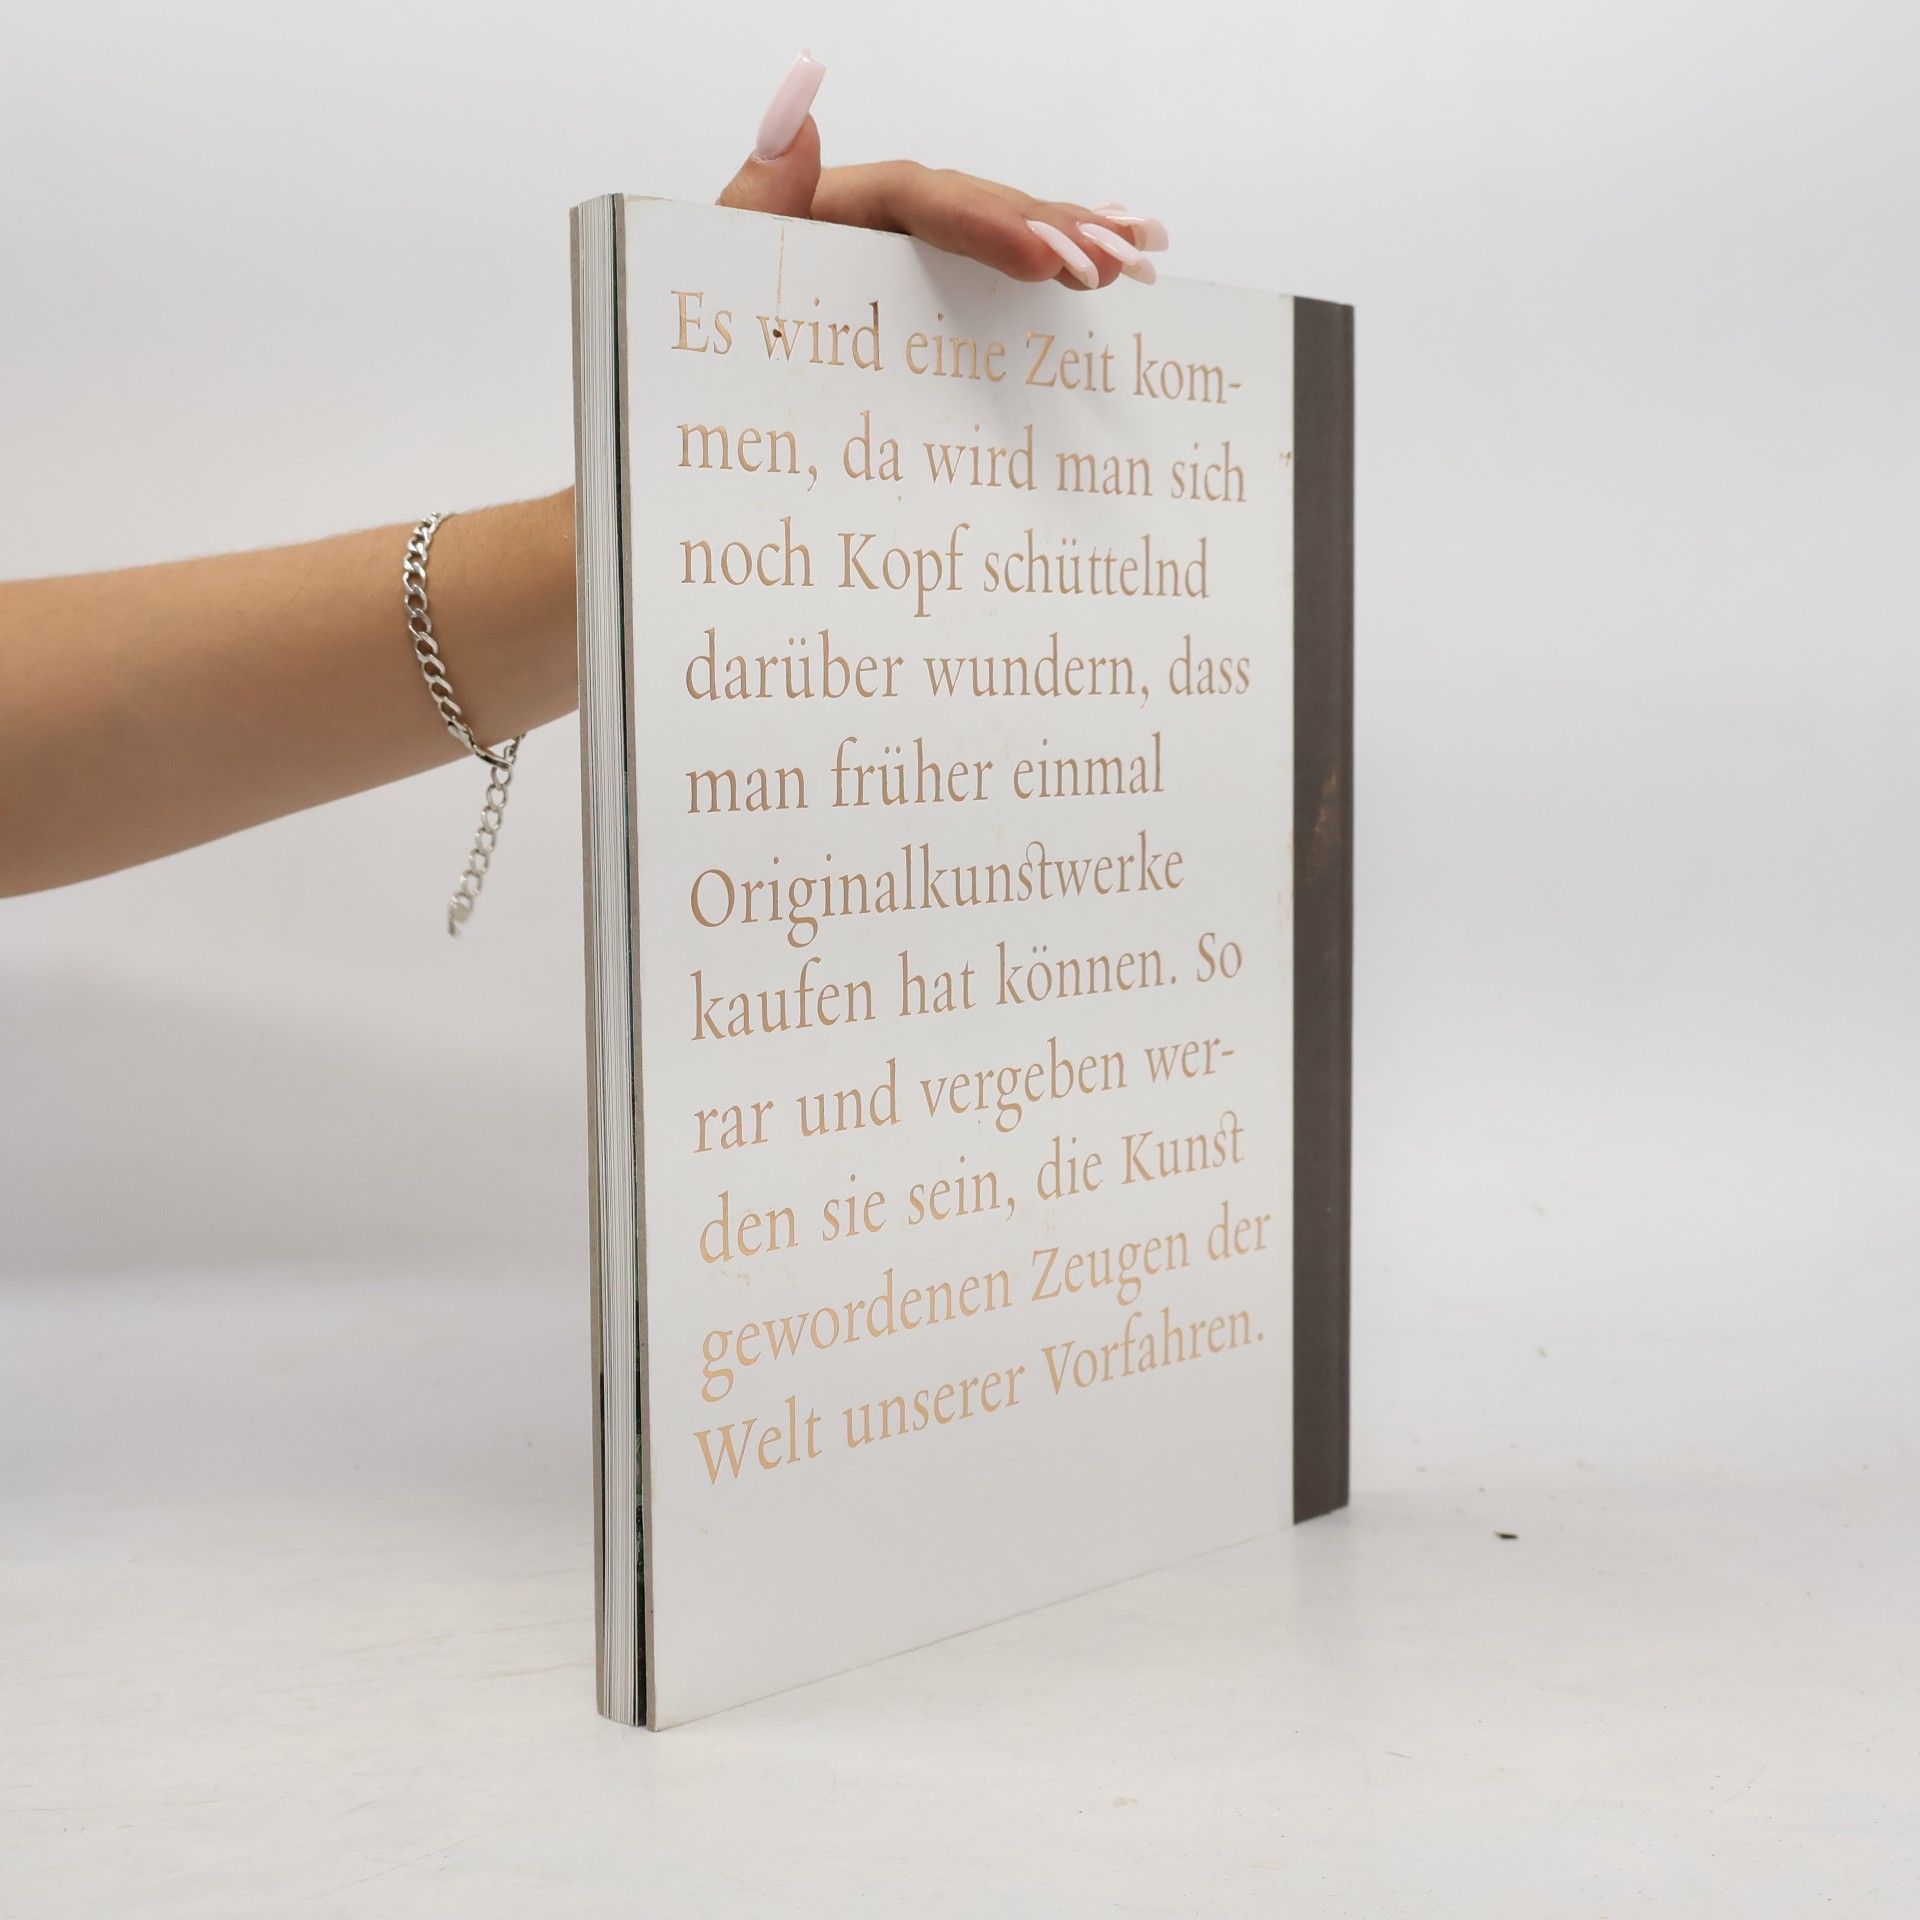 Es wird eine Zeit kom-
men, da wird man sich
noch Kopf schüttelnd
darüber wundern, dass
man früher einmal
Originalkunstwerke
kaufen hat können. So
rar und vergeben wer-
den sie sein, die Kunst
gewordenen Zeugen der
Welt unserer Vorfahren.